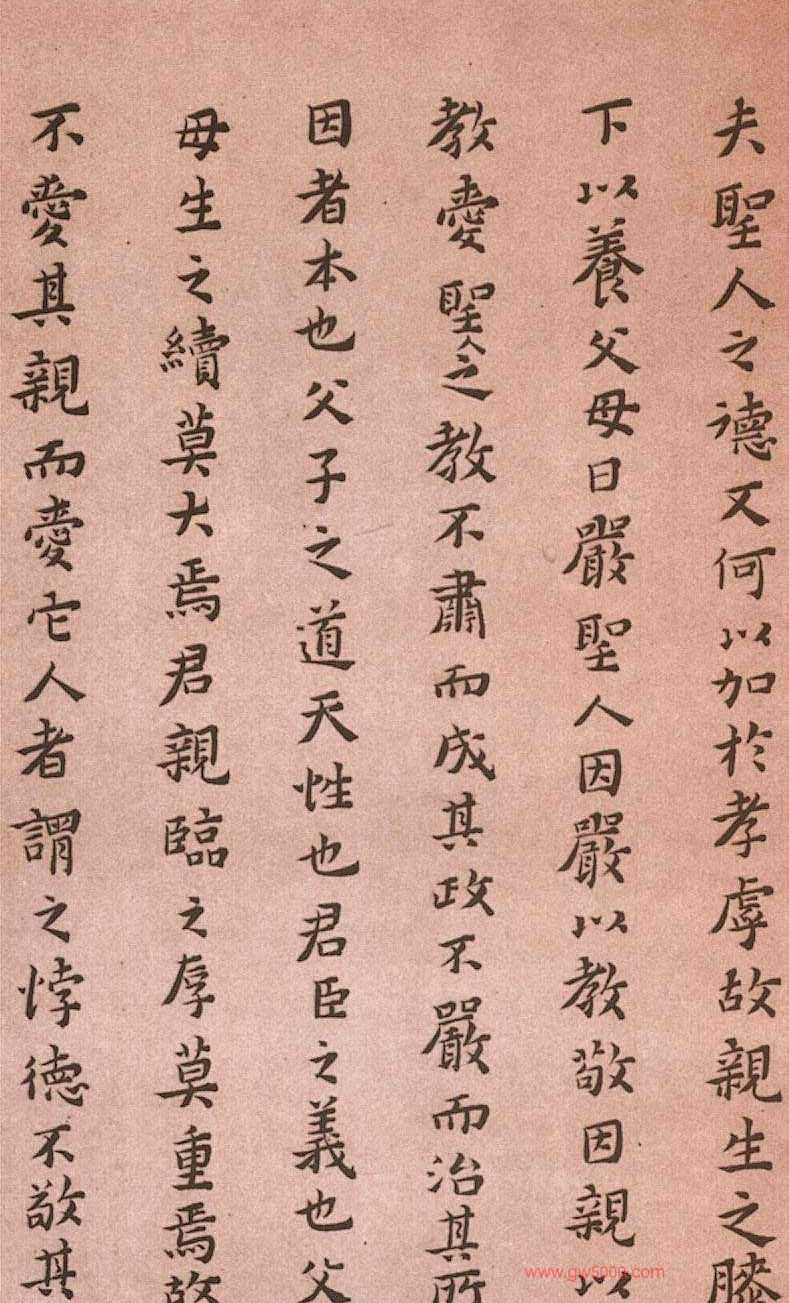 夫聖人之德又何以加於孝虖故親生之膝
下以養父母日嚴聖人因嚴以教敬因親以
教愛聖人之教不肅而成其政不嚴而治其所
因者本也父子之道天性也君臣之義也父
母生之續莫大焉君親臨之厚莫重焉故
不愛其親而愛它人者謂之悖德不敬其
www.gw5000.com